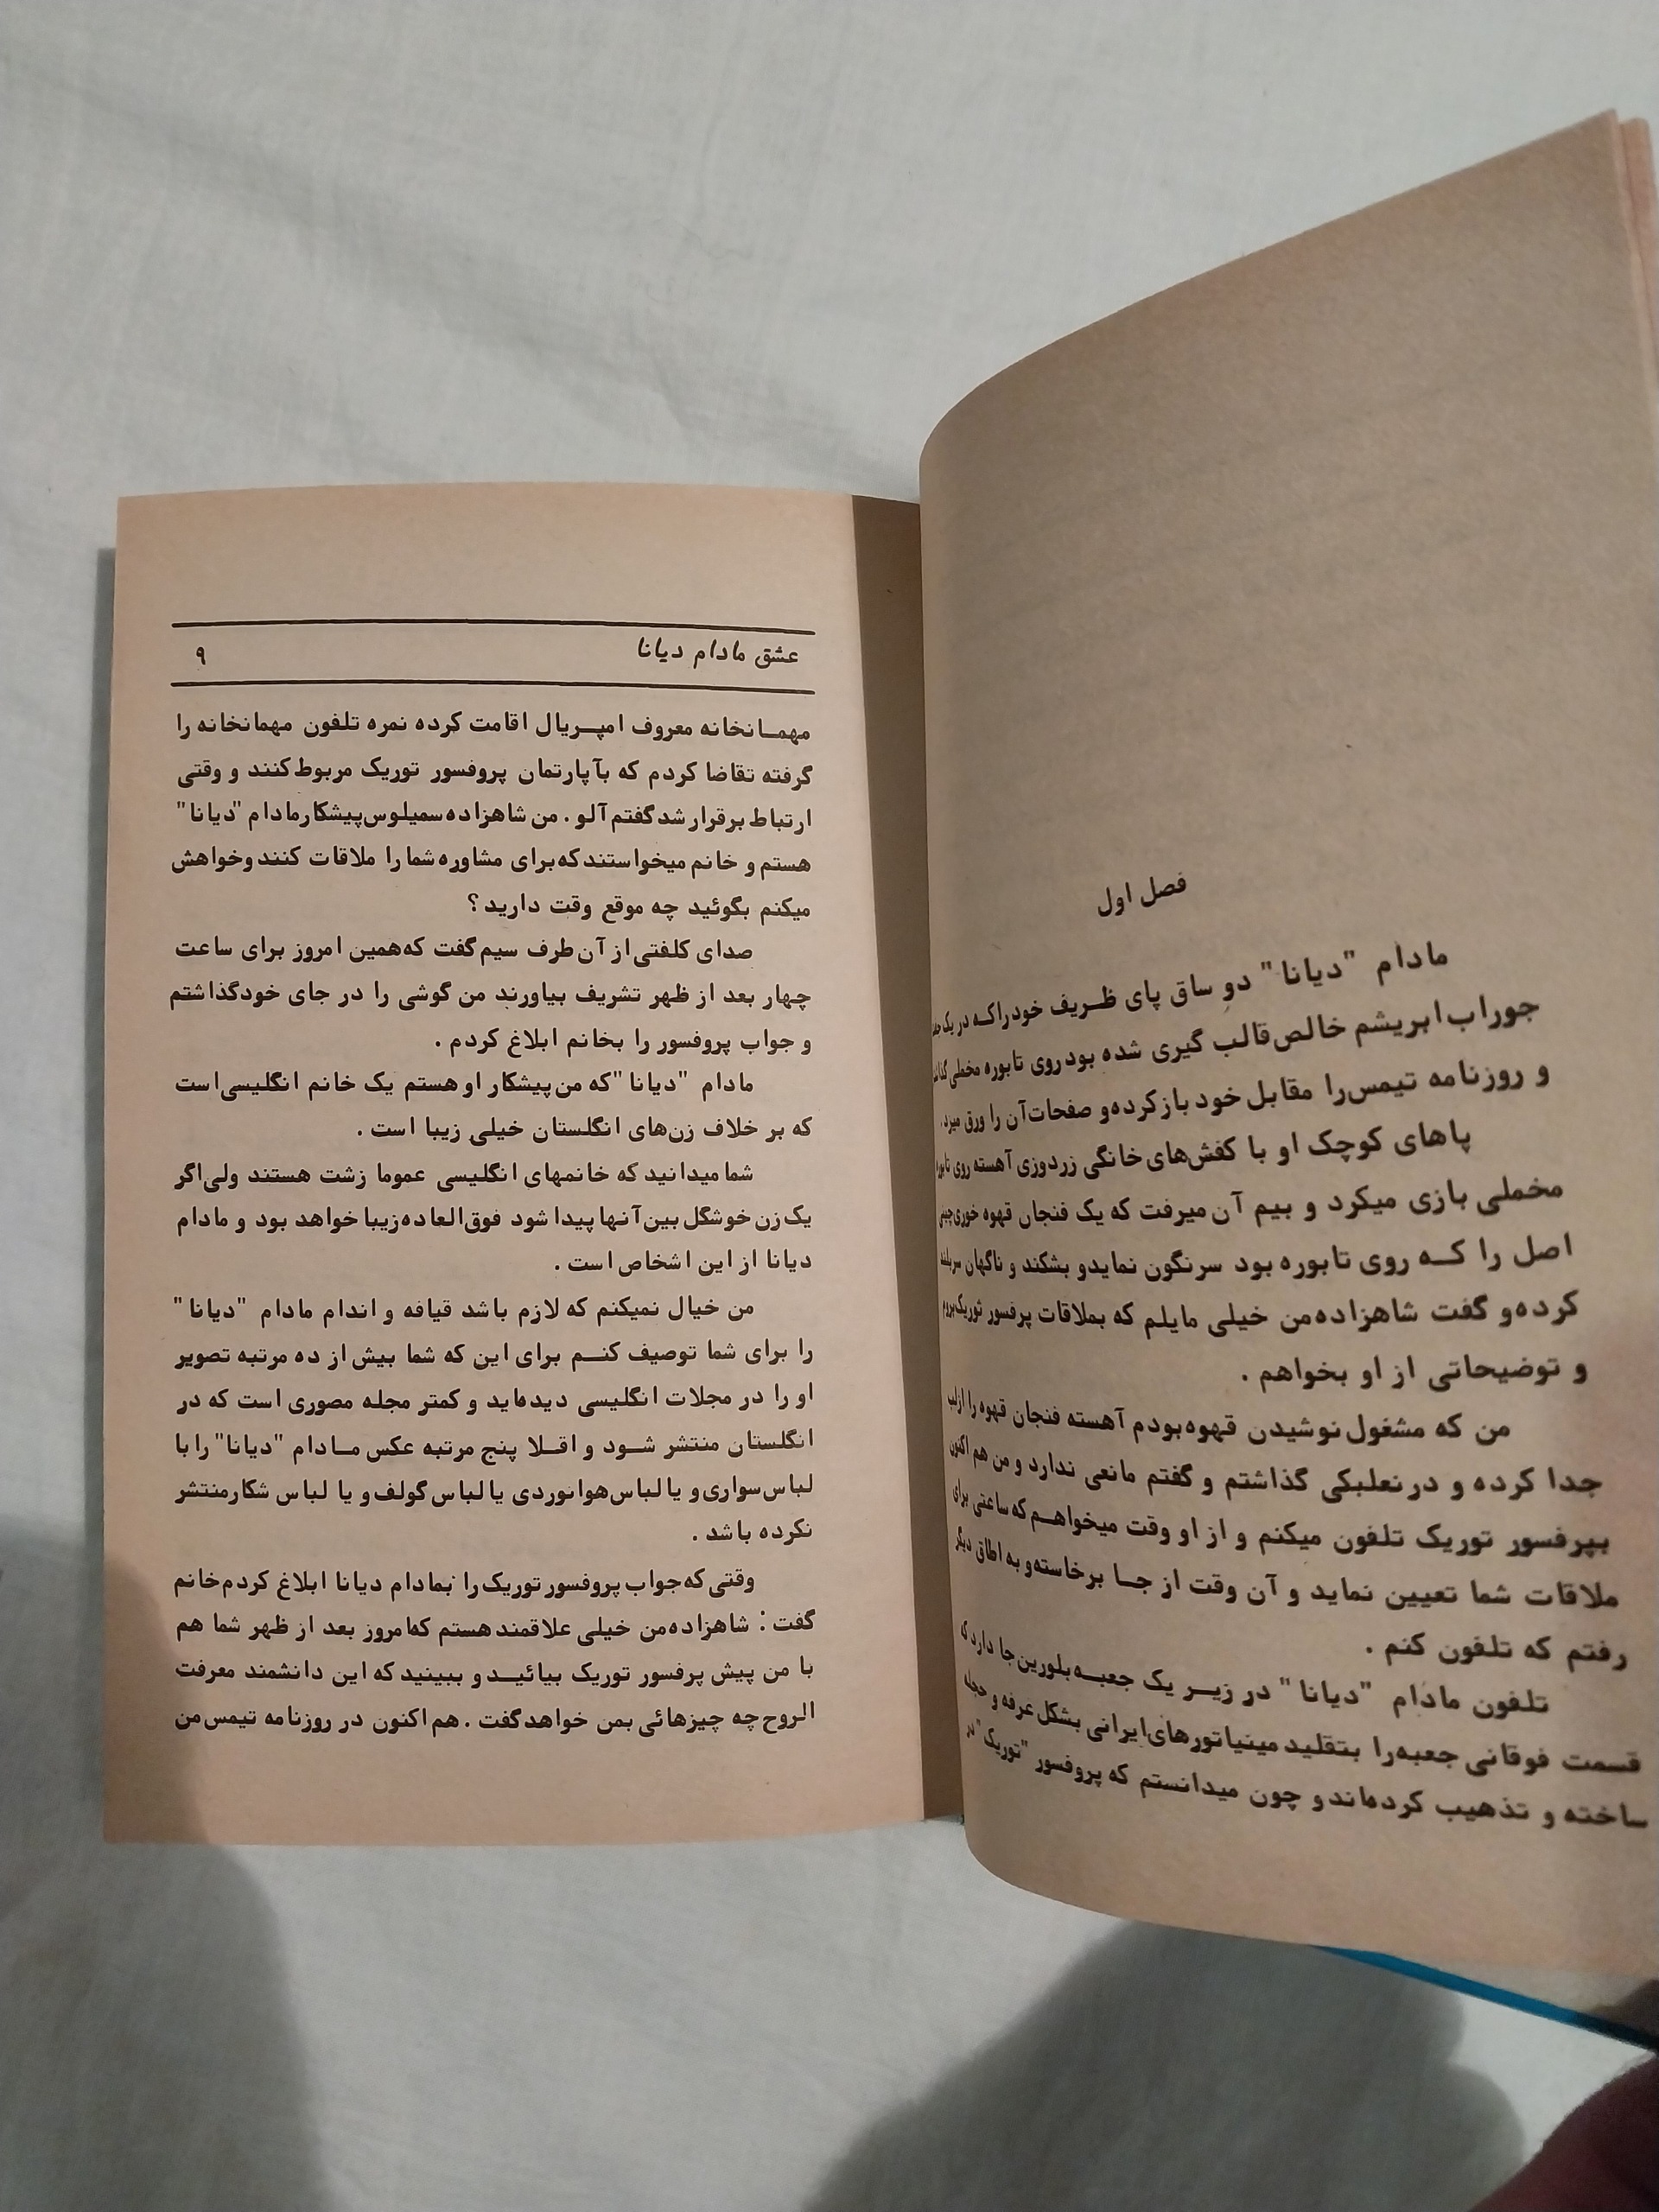 فصل اول
مادام "دیانا" دو ساق پای ظـریف خودراکـه در یک
جوراب ابریشم خالص قالب گیری شده بود روی تابوره مخملی
و روزنامه تیمس‌را مقابل خود بازکرده‌و صفحات‌آن را ورق میزد.
پاهای کوچک او با کفش‌های خانگی زردوزی آهسته روی تابوره
مخملی بازی میکرد و بیم آن میرفت که یک فنجان قهوه خوری‌چینی
اصل را کــه روی تابوره بود سرنگون نمایدو بشکند و ناگهان سربلند
کرده‌و گفت شاهزاده‌من خیلی مایلم که بملاقات پرفسور توریک‌بروم
و توضیحاتی از او بخواهم .
من که مشغول نوشیدن قهوه‌بودم آهسته فنجان قهوه را ازلب
جدا کرده و درنعلبکی گذاشتم و گفتم مانعی ندارد و من هم اکنون
بپرفسور توریک تلفون میکنم و از او وقت میخواهــم که ساعتی برای
ملاقات شما تعیین نماید و آن وقت از جــا برخاسته‌و به اطاق دیگر
رفتم که تلفون کنم .
تلفون مادام "دیانا" در زیــر یک جعبــه‌بلورین‌جا دارد که
قسمت فوقانی جعبه‌را بتقلید مینیاتورهای‌ایرانی بشکل غرفه و حجله
ساخته و تذهیب کرده‌اند و چون میدانستم که پروفسور "توریک" در
عشق مادام دیانا ۹
مهمــانخانه معروف امپــریال اقامت کرده نمره تلفون مهمانخانه را
گرفته تقاضا کردم که بآپارتمان پروفسور توریک مربوط‌کنند و وقتی
ارتباط برقرار شد گفتم آلو . من شاهزاده سمیلوس‌پیشکارمادام "دیانا"
هستم و خانم میخواستند که‌برای مشاوره شما را ملاقات کنند وخواهش
میکنم بگوئید چه موقع وقت دارید ؟
صدای کلفتی از آن طرف سیم‌گفت که‌همین امروز برای ساعت
چهار بعد از ظهر تشریف بیاورند من گوشی را در جای خودگذاشتم
و جواب پروفسور را بخانم ابلاغ کردم .
مادام "دیانا" که من‌پیشکار او هستم یک خانم انگلیسی‌است
که بر خلاف زن‌های انگلستان خیلی زیبا است .
شما میدانید که خانمهای انگلیسی عموما زشت هستند ولی‌اگر
یک‌زن خوشگل بین‌آنها پیدا شود فوق‌العاده‌زیبا خواهد بود و مادام
دیانا از این اشخاص است .
من خیال نمیکنم که لازم باشد قیافه و اندام مادام "دیانا"
را برای شما توصیف کنــم برای این که شما بیش از ده مرتبه تصویر
او را در مجلات انگلیسی دیده‌اید و کمتر مجله مصوری است که در
انگلستان منتشر شــود و اقــلا پنج مرتبه عکس مــادام "دیانا" را با
لباس‌سواری و یا لباس‌هوانوردی یا لباس گولف و یا لباس شکارمنتشر
نکرده باشد .
وقتی که‌جواب پروفسور توریک‌را بمادام دیانا ابلاغ کردم‌خانم
گفت : شاهزاده‌من خیلی علاقمند هستم که‌امروز بعد از ظهر شما هم
با من پیش پرفسور توریک بیائیــد و ببینید که این دانشمند معرفت
الروح چه چیزهائی بمن خواهدگفت . هم‌اکنون در روزنامه تیمس‌من